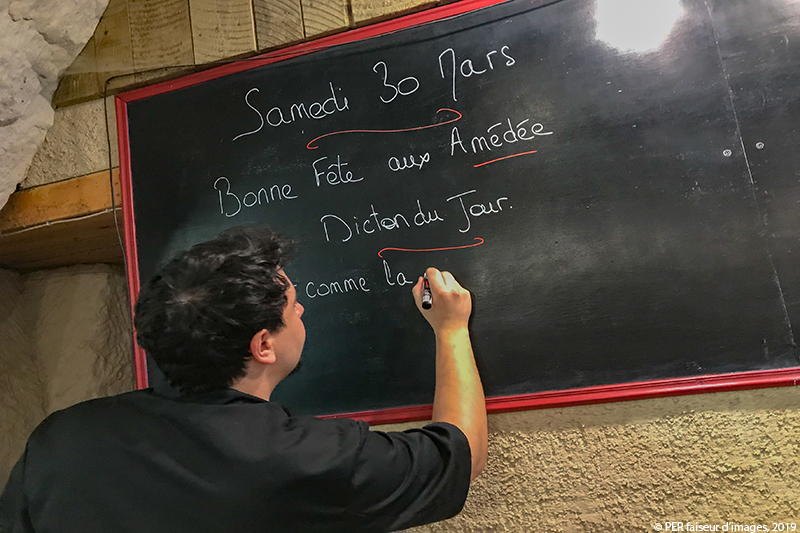 Samedi 30 Mars
Bonne Fête aux Amédée
Dicton du Jour.
comme la
© PER faiseur d'images, 2019